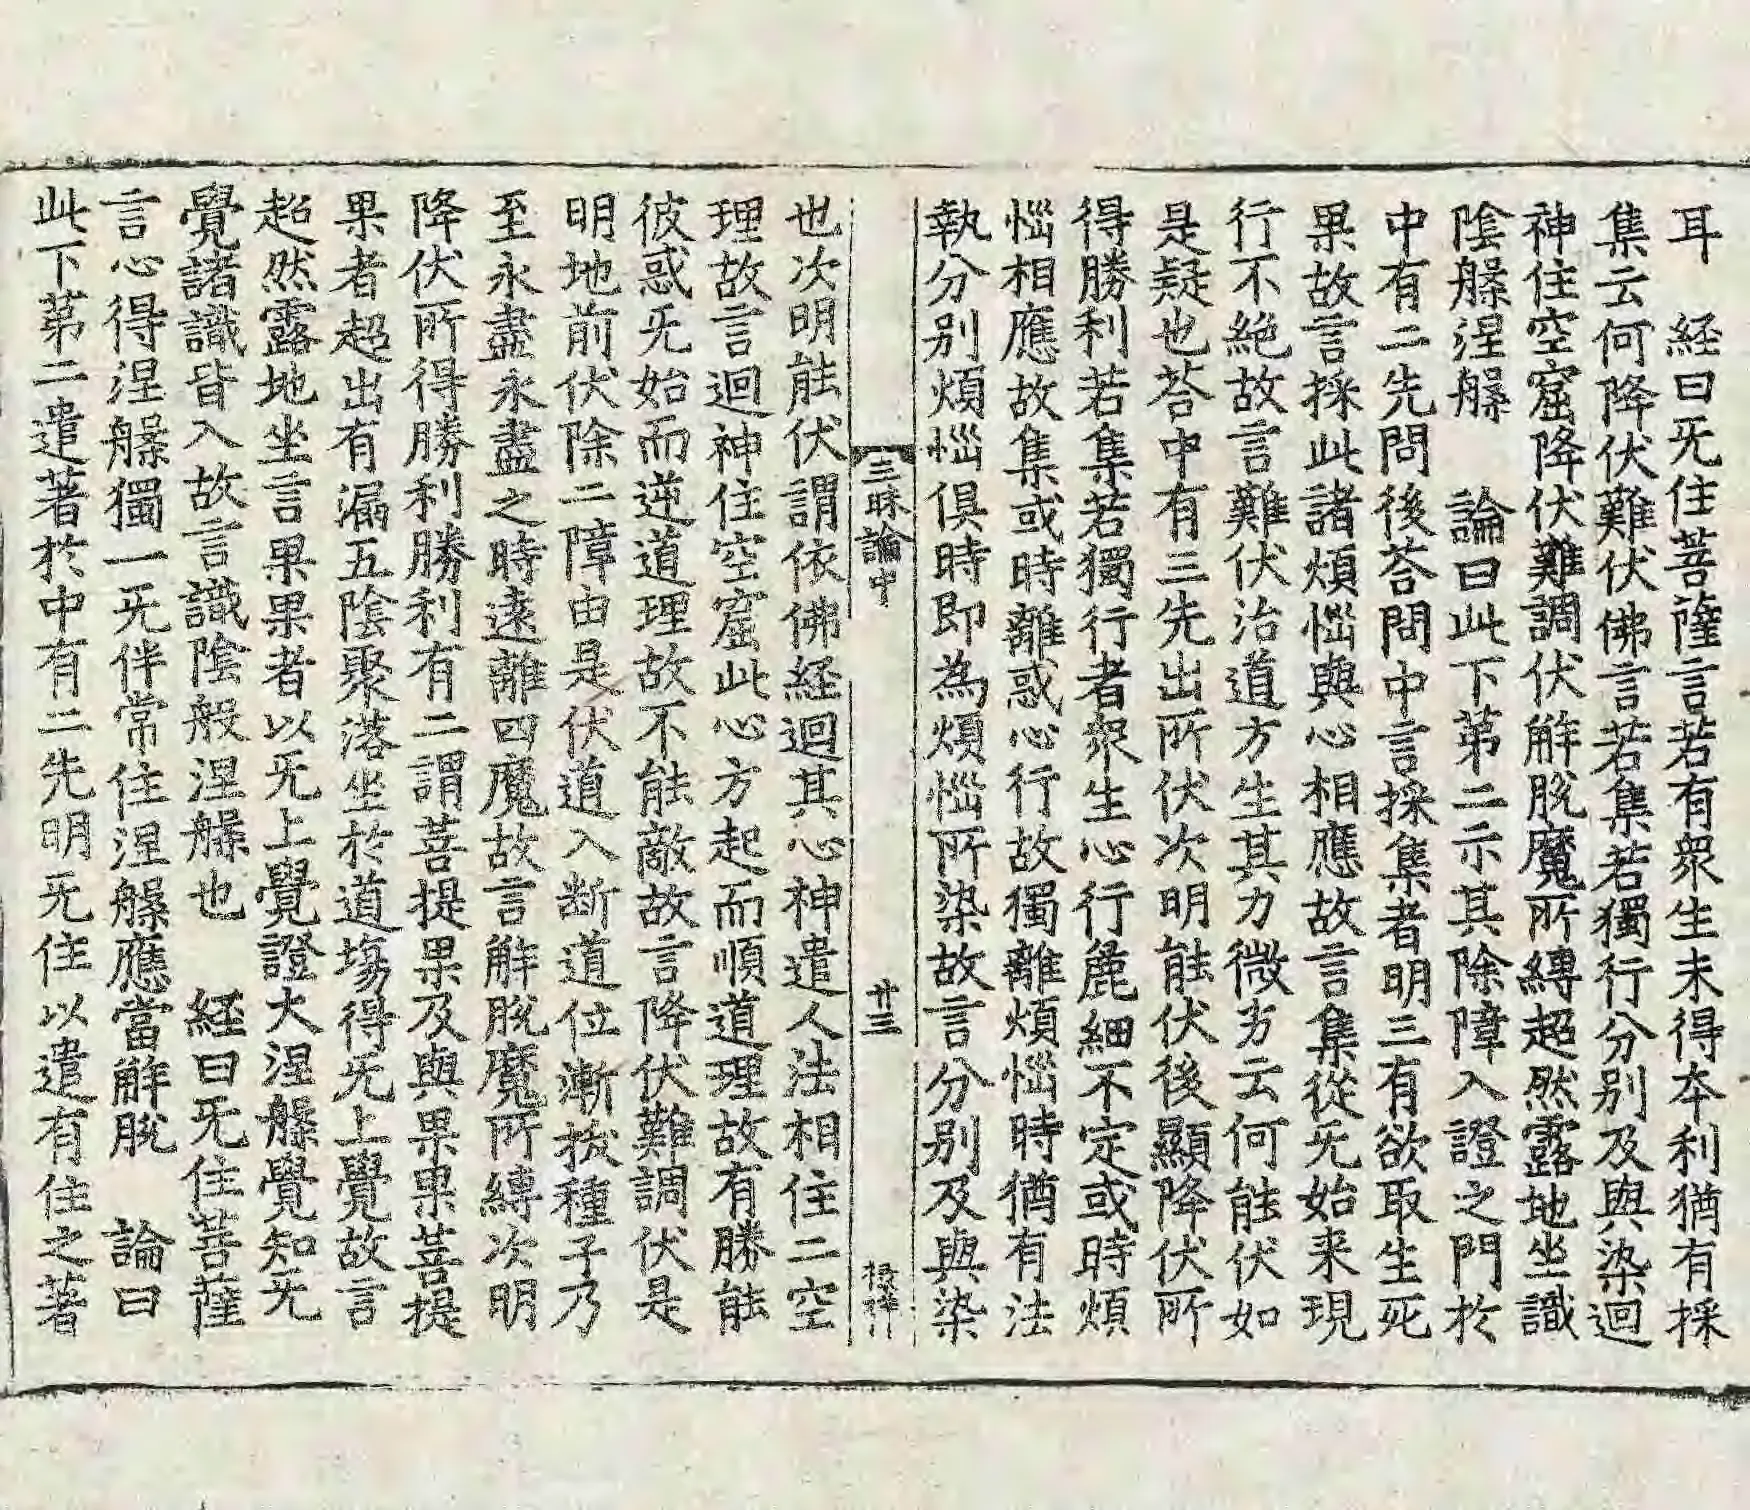 耳　経曰旡住菩薩言若有衆生未得本利猶有採
集云何降伏難伏佛言若集若獨行分别及與染迴
神住空窟降伏難調伏解脫魔所縛超然露地坐識
陰槃涅槃　論曰此下第二示其除障入證之門於
中有二先問後荅問中言採集者明三有欲取生死
果故言採此諸煩惱與心相應故言集從旡始来現
行不絶故言難伏治道方生其力微劣云何能伏如
是疑也荅中有三先出所伏次明能伏後顯降伏所
得勝利若集若獨行者衆生心行麁細不定或時煩
惱相應故集或時離惑心行故獨離煩惱時猶有法
執分别煩惱俱時即為煩惱所染故言分别及與染
三昧論中　廿三
也次明能伏謂依佛経迴其心神遣人法相住二空
理故言迴神住空窟此心方起而順道理故有勝能
彼惑旡始而逆道理故不能敵故言降伏難調伏是
明地前伏除二障由是伏道入断道位漸拔種子乃
至永盡永盡之時遠離四魔故言解脫魔所縛次明
降伏所得勝利勝利有二謂菩提果及與果果菩提
果者超出有漏五陰聚落坐於道塲得旡上覺故言
超然露地坐言果果者以旡上覺證大涅槃覺知旡
覺諸識皆入故言識陰般涅槃也　経曰旡住菩薩
言心得涅槃獨一旡伴常住涅槃應當解脫　論曰
此下第二遣著於中有二先明旡住以遣有住之著